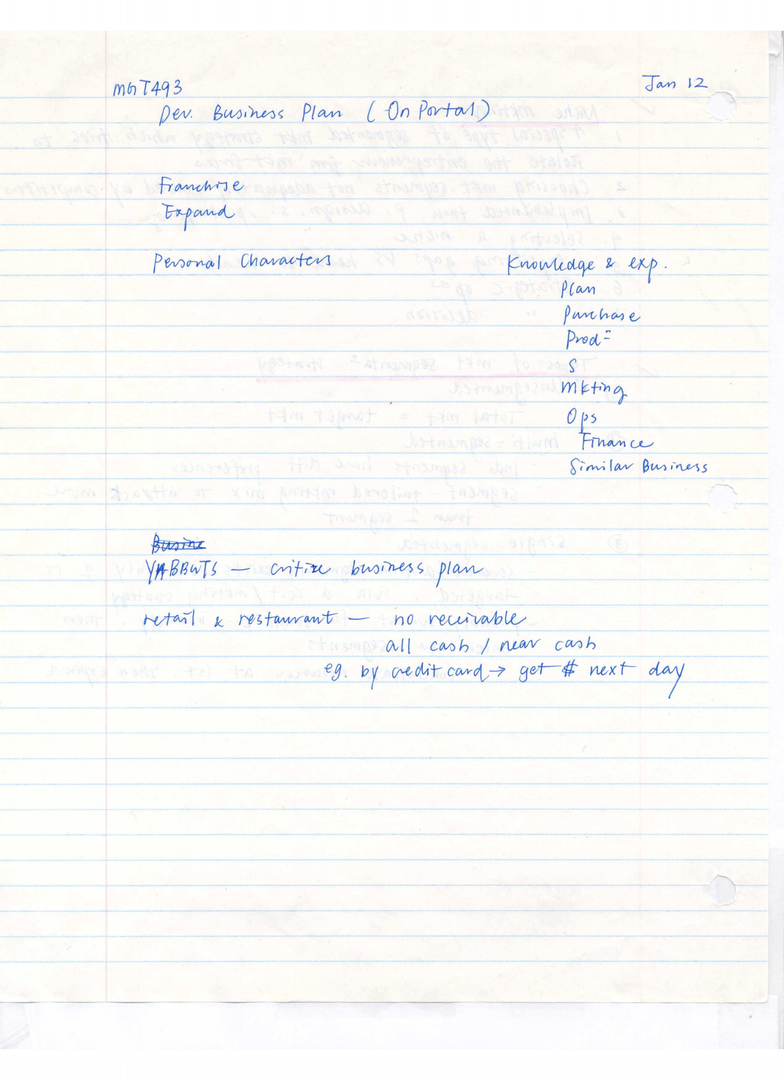 MGT493
Jan 12
Dev. Business Plan (On Portal)
Franchise
Expand
Personal Characters
Knowledge & exp.
Plan
Purchase
Prod=
S
Mkting
Ops
Finance
Similar Business
Busine
YABBUTS — critize business plan
retail & restaurant — no receivable
all cash / near cash
eg. by credit card → get $ next day